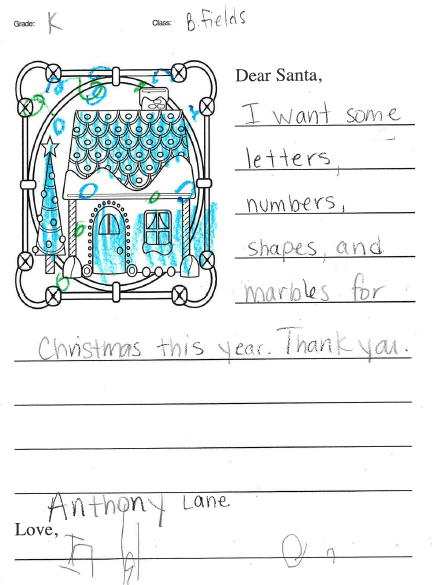 Grade: K Class: B. Fields
Dear Santa,
I want some
letters,
numbers,
shapes, and
marbles for
Christmas this year. Thank you.
Anthony Lane
Love,